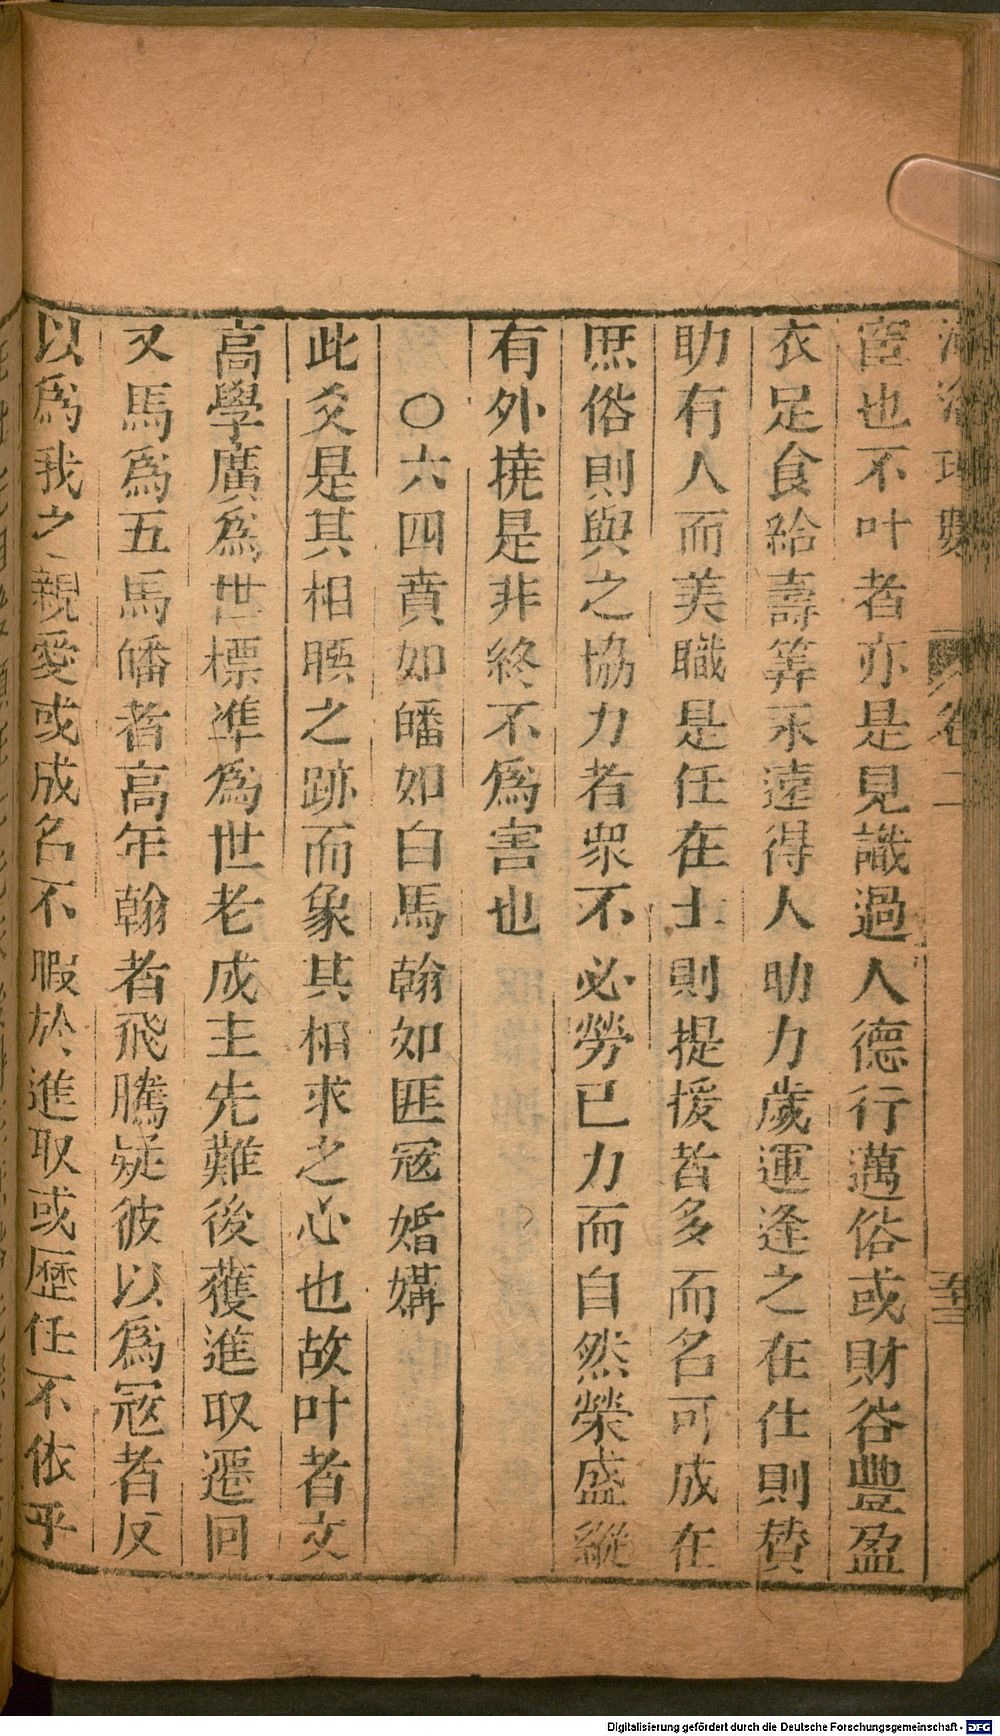 河洛理數 卷二 五三
富也不叶者亦是見識過人德行邁俗或財谷豐盈
衣足食給壽筭永遠得人助力歲運逢之在仕則賛
助有人而美職是任在士則提援者多而名可成在
庶俗則與之協力者衆不必勞已力而自然榮盛縱
有外撓是非終不爲害也
○六四賁如皤如白馬翰如匪冦婚媾
此爻是其相賏之跡而象其相求之心也故叶者文
高學廣爲世標準爲世老成主先難後獲進取遲回
又馬爲五馬皤者高年翰者飛騰疑彼以爲冦者反
以爲我之親愛或成名不暇於進取或歷任不依乎
Digitalisierung gefördert durch die Deutsche Forschungsgemeinschaft - DFG